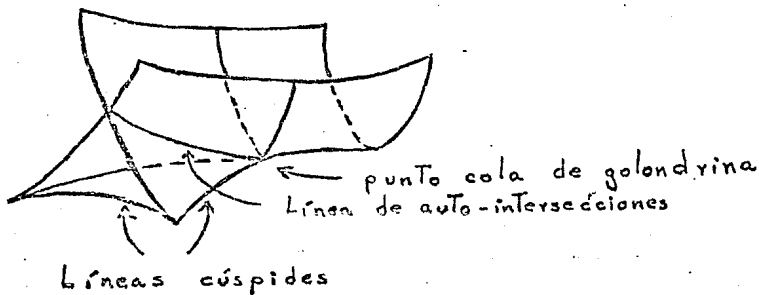 punto cola de golondrina
Línea de auto-intersecciones
Líneas cúspides